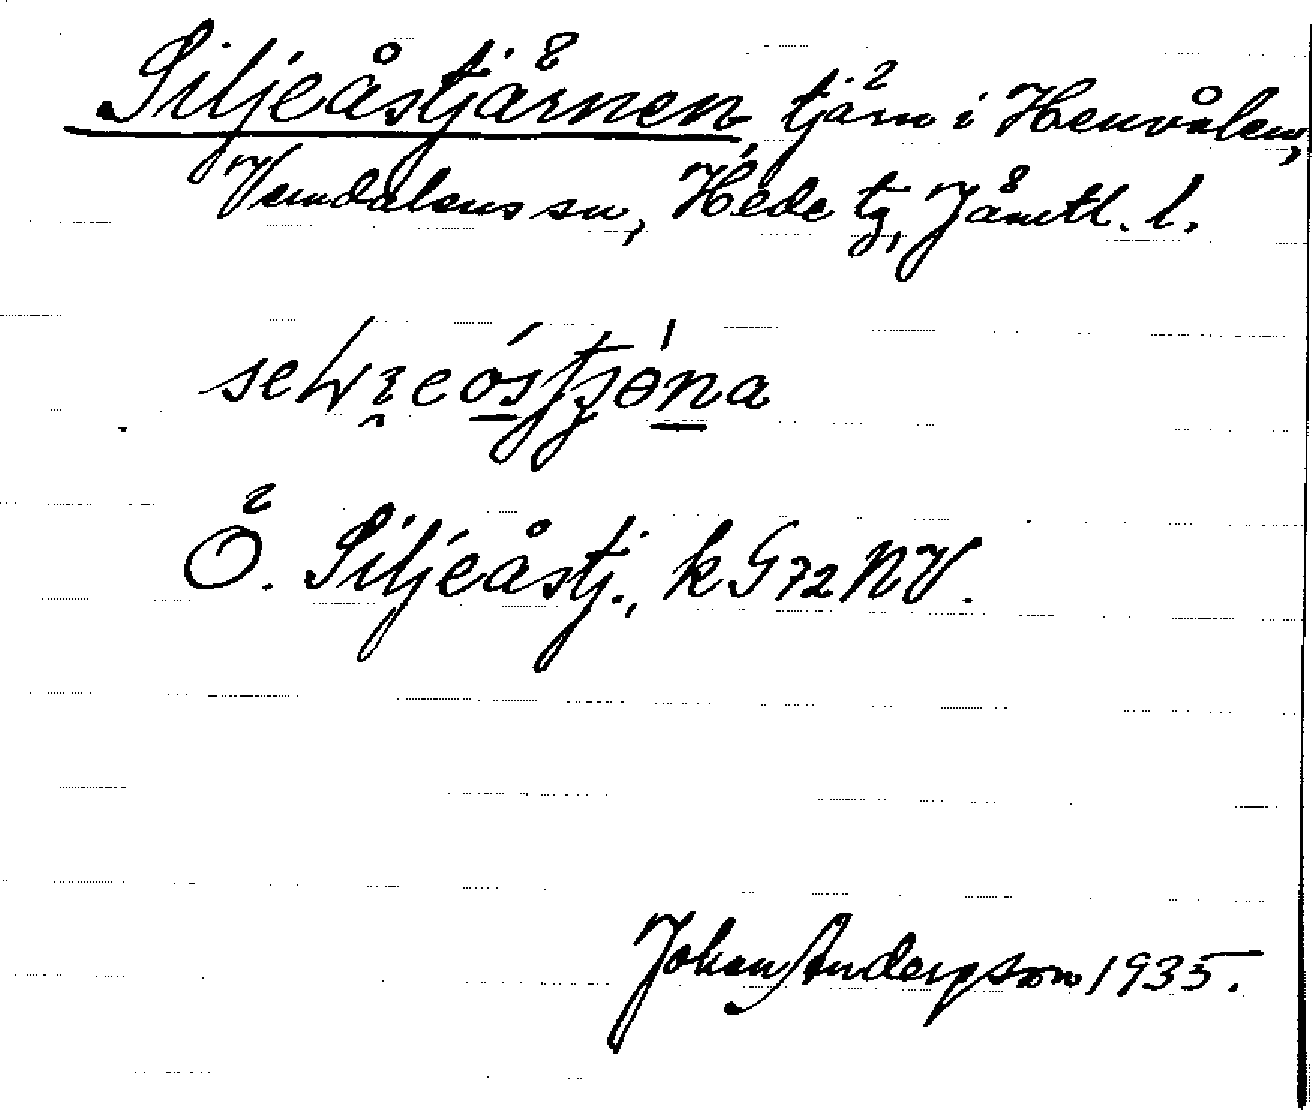 Siljeåstjärnen, tjärn i Henvålen,
Vemdalens sn, Hede tg, Jämtl. l.
Ö. Siljeåstj., k G 72 NV.
Johan Anderson 1935.